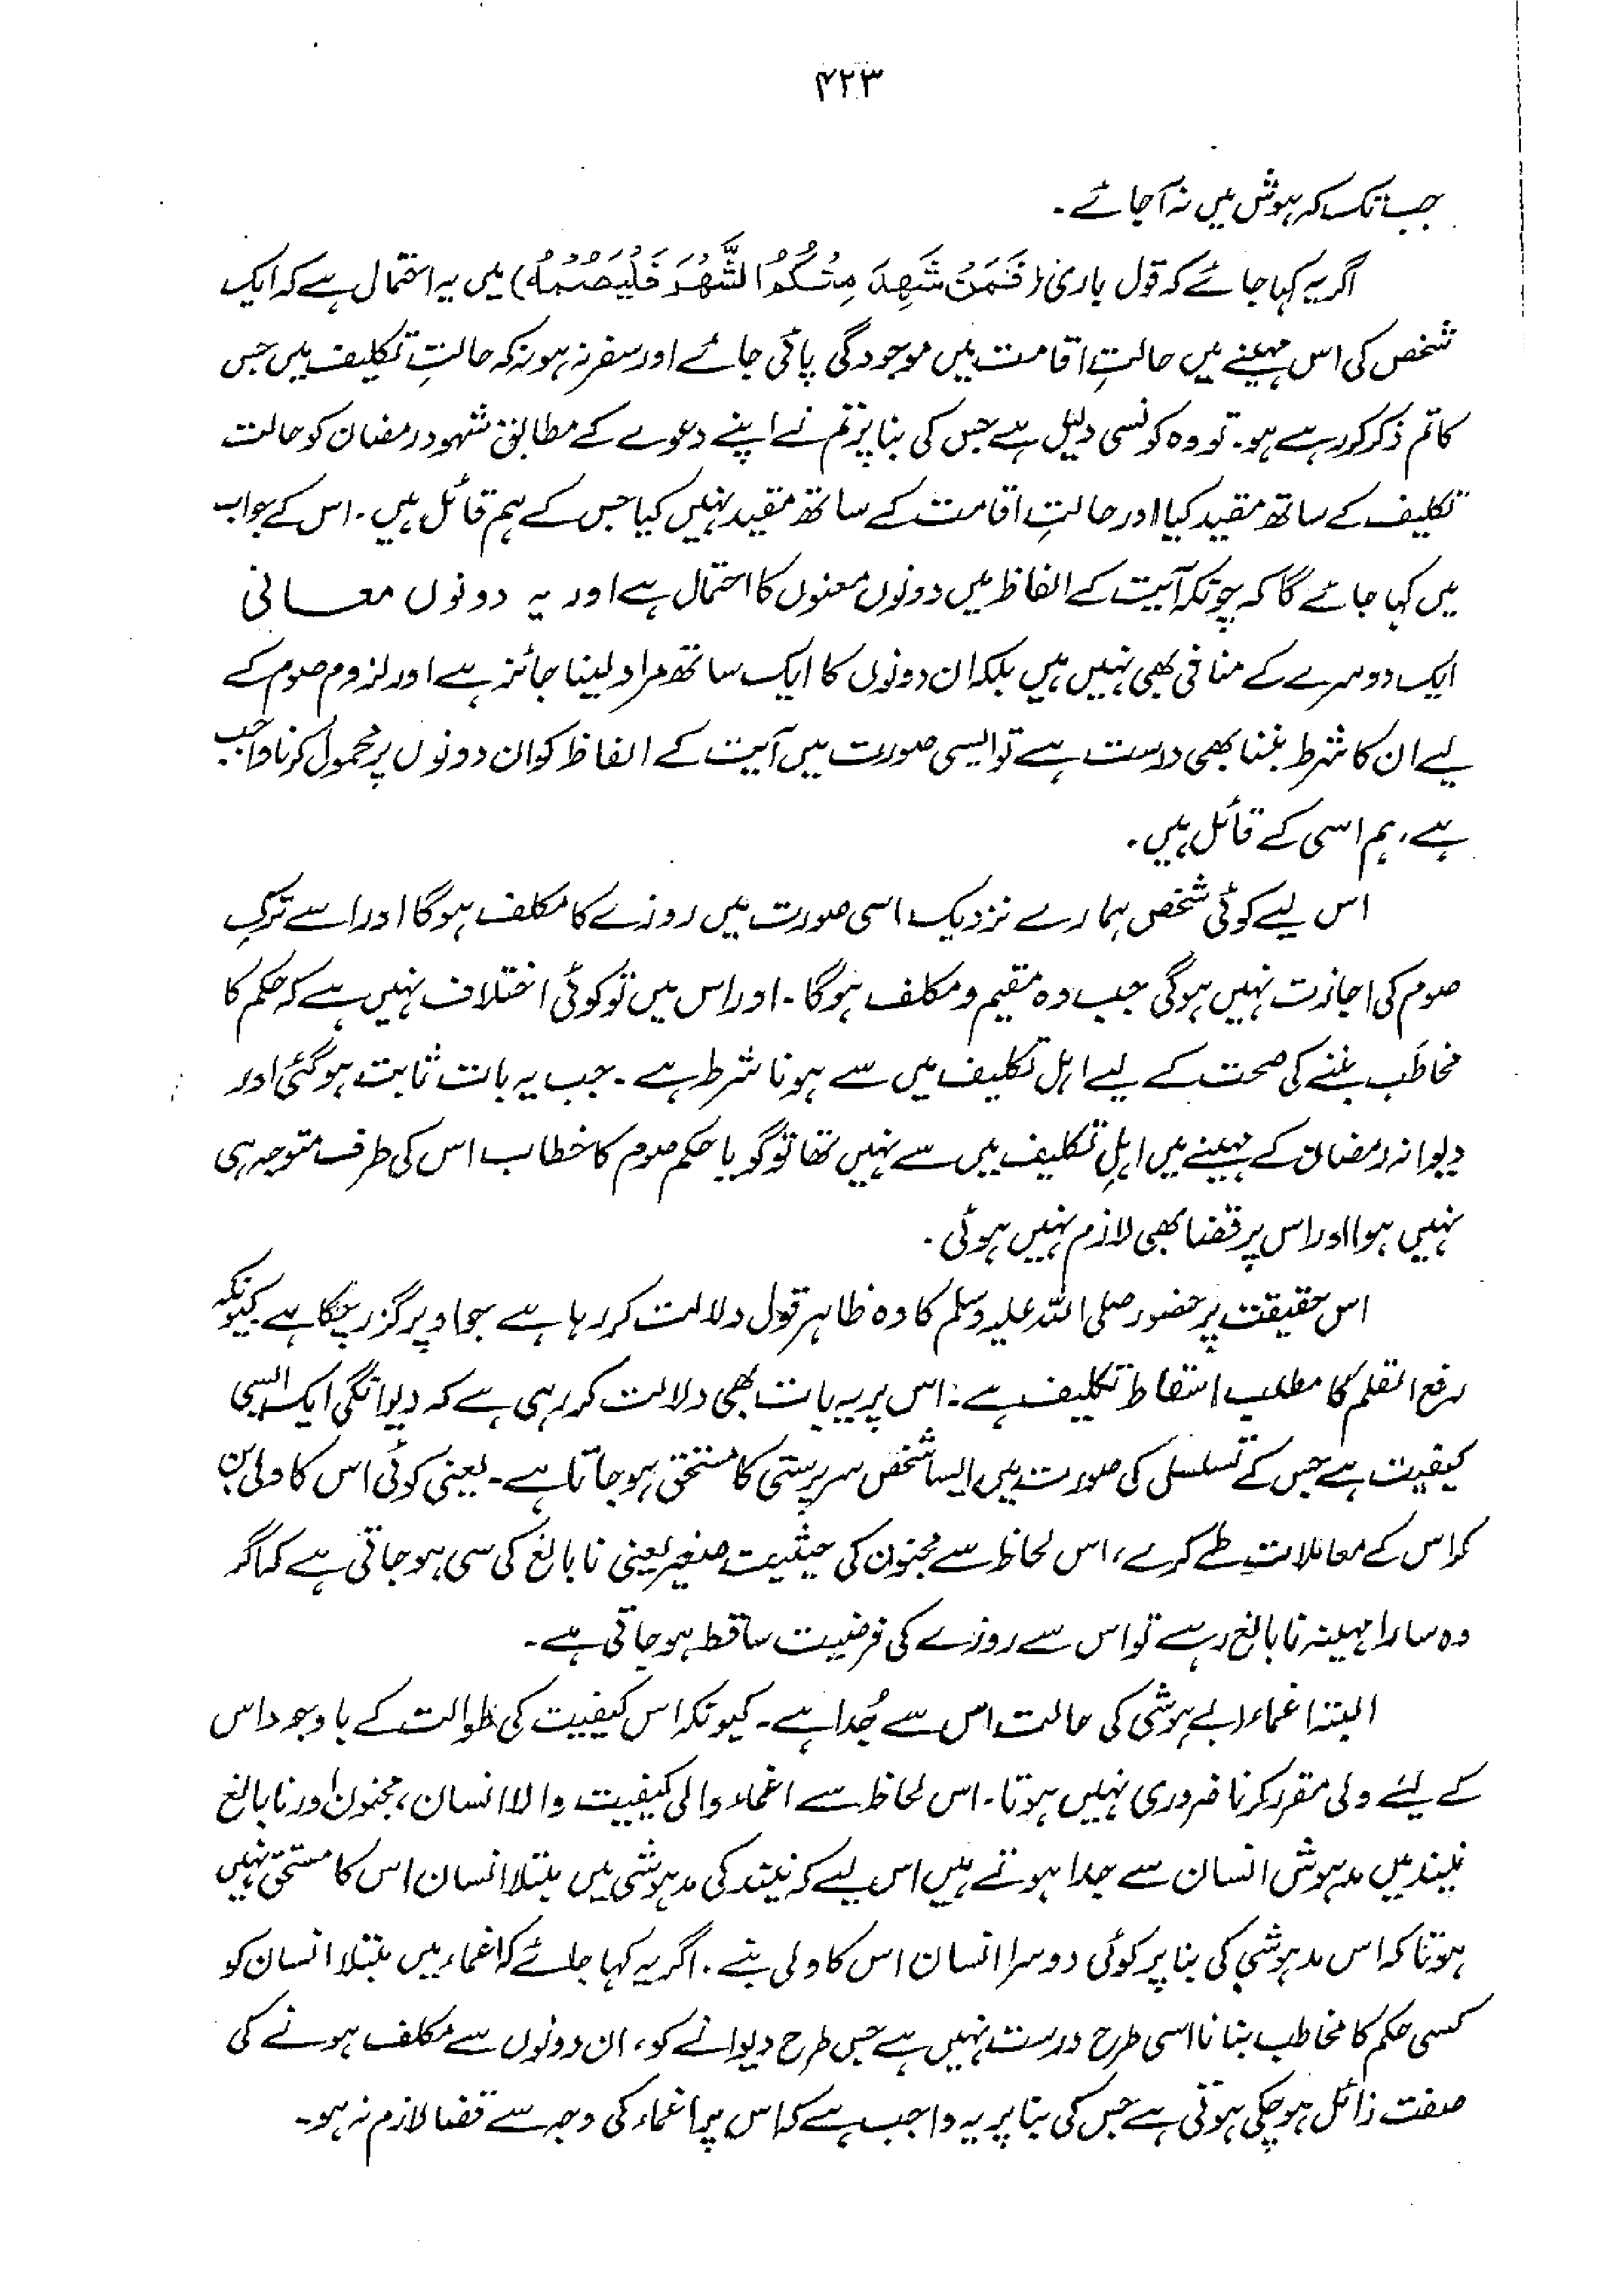 ۴۲۳
جب تک کہ ہوش میں نہ آجائے۔
اگر یہ کہا جائے کہ قول باری (فَمَنْ شَهِدَ مِنْكُمُ الشَّهْرَ فَلْيَصُمْهُ) میں یہ احتمال ہے کہ ایک
شخص کی اس مہینے میں حالتِ اقامت میں موجودگی پائی جائے اور سفر نہ ہو نہ کہ حالتِ تکلیف میں جس
کا تم ذکر کر رہے ہو۔ تو وہ کونسی دلیل ہے جس کی بنا پر تم نے اپنے دعوے کے مطابق شہود رمضان کو حالت
تکلیف کے ساتھ مقید کیا اور حالتِ اقامت کے ساتھ مقید نہیں کیا جس کے ہم قائل ہیں۔ اس کے جواب
میں کہا جائے گا کہ چونکہ آیت کے الفاظ میں دونوں معنوں کا احتمال ہے اور یہ دونوں معانی
ایک دوسرے کے منافی بھی نہیں ہیں بلکہ ان دونوں کا ایک ساتھ مراد لینا جائز ہے اور لزوم صوم کے
لیے ان کا شرط بننا بھی درست ہے تو ایسی صورت میں آیت کے الفاظ کو ان دونوں پر محمول کرنا واجب
ہے، ہم اسی کے قائل ہیں۔
اس لیے کوئی شخص ہمارے نزدیک اسی صورت میں روزے کا مکلف ہوگا اور اسے ترکِ
صوم کی اجازت نہیں ہوگی جب وہ مقیم و مکلف ہوگا۔ اور اس میں تو کوئی اختلاف نہیں ہے کہ حکم کا
مخاطَب بننے کی صحت کے لیے اہل تکلیف میں سے ہونا شرط ہے۔ جب یہ بات ثابت ہوگئی اور
دیوانہ رمضان کے مہینے میں اہلِ تکلیف میں سے نہیں تھا تو گویا حکم صوم کا خطاب اس کی طرف متوجہ ہی
نہیں ہوا اور اس پر قضا بھی لازم نہیں ہوئی۔
اس حقیقت پر حضور صلی اللہ علیہ وسلم کا وہ ظاہر قول دلالت کر رہا ہے جو اوپر گزر چکا ہے کیونکہ
رفع القلم کا مطلب اسقاط تکلیف ہے۔ اس پر یہ بات بھی دلالت کر رہی ہے کہ دیوانگی ایک ایسی
کیفیت ہے جس کے تسلسل کی صورت میں ایسا شخص سرپرستی کا مستحق ہو جاتا ہے۔ یعنی کوئی اس کا ولی بن
کر اس کے معاملات طے کرے، اس لحاظ سے مجنون کی حیثیت صغیر یعنی نابالغ کی سی ہو جاتی ہے کہ اگر
وہ سارا مہینہ نابالغ رہے تو اس سے روزے کی فرضیت ساقط ہو جاتی ہے۔
البتہ اغماء، بے ہوشی کی حالت اس سے جُدا ہے۔ کیونکہ اس کیفیت کی طوالت کے باوجود اس
کے لئے ولی مقرر کرنا ضروری نہیں ہوتا۔ اس لحاظ سے اغماء والی کیفیت والا انسان، مجنون اور نابالغ
نیند میں مدہوش انسان سے جدا ہوتے ہیں اس لیے کہ نیند کی مدہوشی میں مبتلا انسان اس کا مستحق نہیں
ہوتا کہ اس مدہوشی کی بنا پر کوئی دوسرا انسان اس کا ولی بنے۔ اگر یہ کہا جائے کہ اغماء میں مبتلا انسان کو
کسی حکم کا مخاطب بنانا اسی طرح درست نہیں ہے جس طرح دیوانے کو، ان دونوں سے مکلف ہونے کی
صفت زائل ہو چکی ہوتی ہے جس کی بنا پر یہ واجب ہے کہ اس پر اغماء کی وجہ سے قضا لازم نہ ہو۔